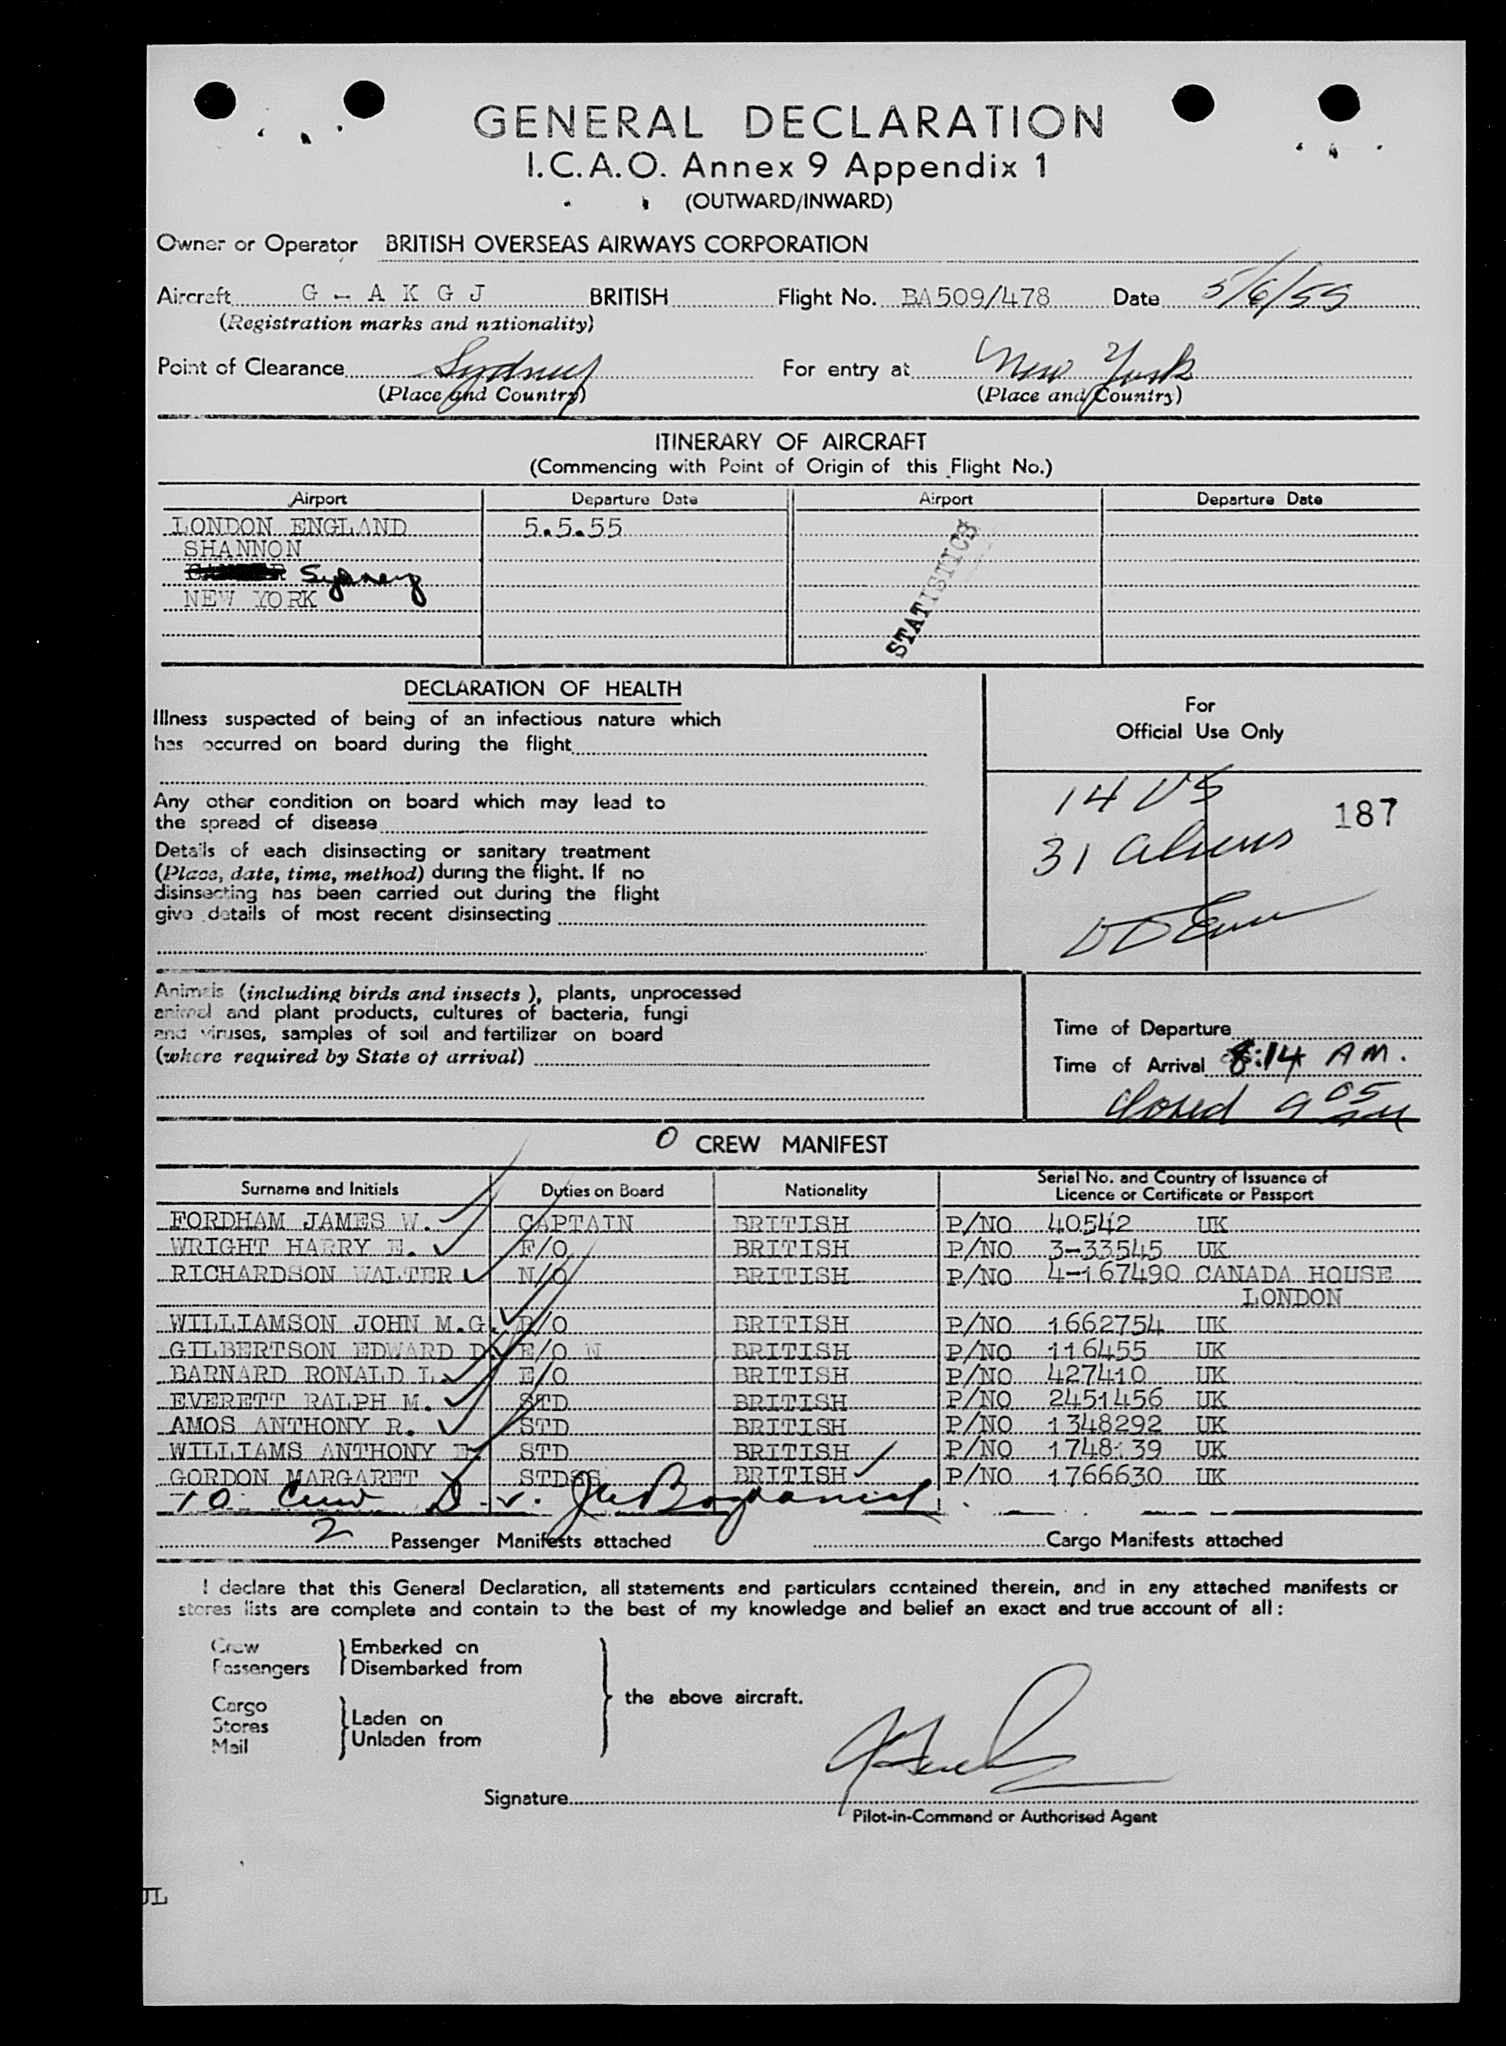 GENERAL DECLARATION
I.C.A.O. Annex 9 Appendix 1
(OUTWARD/INWARD)
Owner or Operator BRITISH OVERSEAS AIRWAYS CORPORATION
Aircraft G - A K G J BRITISH Flight No. BA509/478 Date 5/6/55
(Registration marks and nationality)
Point of Clearance Sydney For entry at New York
(Place and Country) (Place and Country)
ITINERARY OF AIRCRAFT
(Commencing with Point of Origin of this Flight No.)
Airport Departure Date Airport Departure Date
LONDON ENGLAND 5.5.55
SHANNON
Sydney
NEW YORK
STATISTICS
DECLARATION OF HEALTH
Illness suspected of being of an infectious nature which
has occurred on board during the flight
Any other condition on board which may lead to
the spread of disease
Details of each disinsecting or sanitary treatment
(Place, date, time, method) during the flight. If no
disinsecting has been carried out during the flight
give details of most recent disinsecting
For
Official Use Only
14 US
187
31 aliens
Animals (including birds and insects), plants, unprocessed
animal and plant products, cultures of bacteria, fungi
and viruses, samples of soil and fertilizer on board
(where required by State of arrival)
Time of Departure
Time of Arrival 8:14 AM.
Closed 9 05 am
0 CREW MANIFEST
Surname and Initials Duties on Board Nationality Serial No. and Country of Issuance of Licence or Certificate or Passport
FORDHAM JAMES W. CAPTAIN BRITISH P/NO 40542 UK
WRIGHT HARRY E. F/O BRITISH P/NO 3-33545 UK
RICHARDSON WALTER N/O BRITISH P/NO 4-167490 CANADA HOUSE
LONDON
WILLIAMSON JOHN M.G. R/O BRITISH P/NO 1662754 UK
GILBERTSON EDWARD D. E/O N BRITISH P/NO 116455 UK
BARNARD RONALD L. E/O BRITISH P/NO 427410 UK
EVERETT RALPH M. STD BRITISH P/NO 2451456 UK
AMOS ANTHONY R. STD BRITISH P/NO 1348292 UK
WILLIAMS ANTHONY E. STD BRITISH P/NO 1748139 UK
GORDON MARGARET STDSS BRITISH P/NO 1766630 UK
10 Crew
2 Passenger Manifests attached Cargo Manifests attached
I declare that this General Declaration, all statements and particulars contained therein, and in any attached manifests or
stores lists are complete and contain to the best of my knowledge and belief an exact and true account of all:
Crew Embarked on
Passengers Disembarked from
the above aircraft.
Cargo
Stores Laden on
Mail Unladen from
Signature
Pilot-in-Command or Authorised Agent
JL